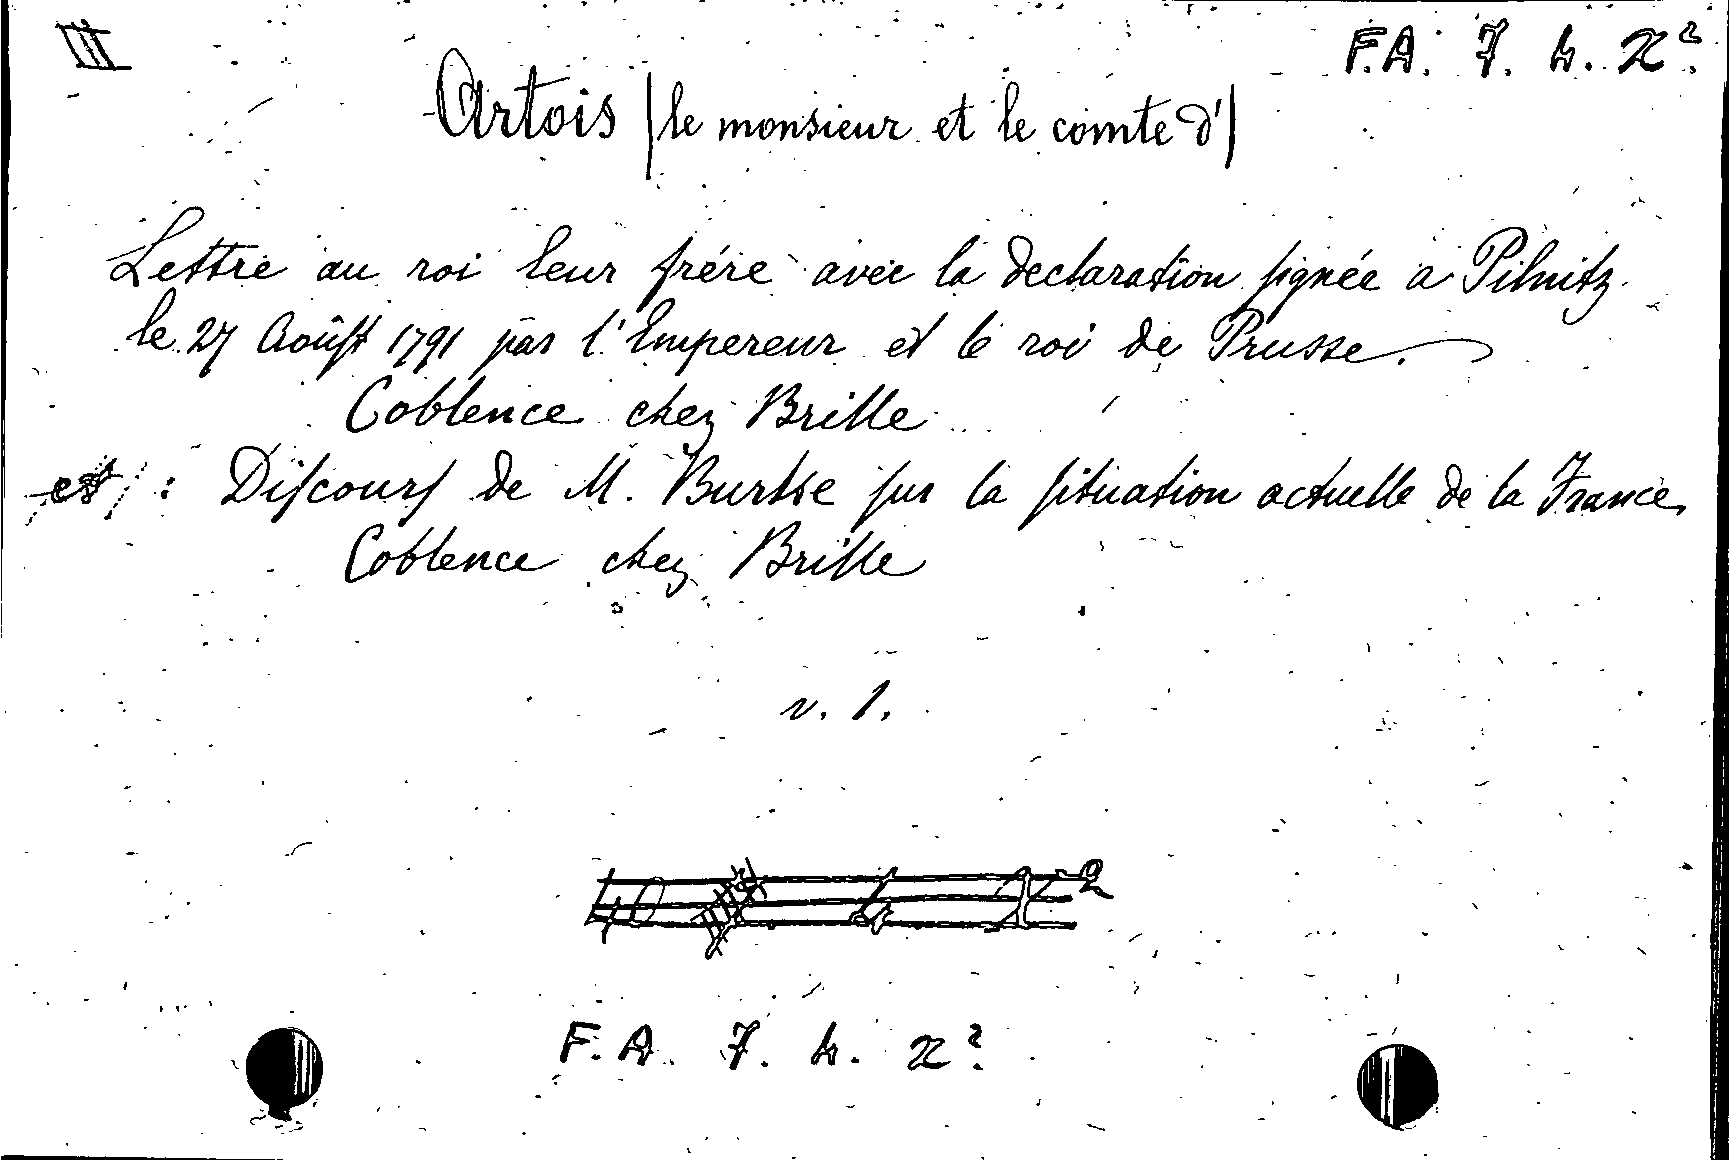 III
F.A. 7. h. x².
Artois (le monsieur et le comte d')
Lettre au roi leur frére avec la declaration signée a Pilnitz
le 27 Aoûst 1791 par l'Empereur et le roi de Prusse.
Coblence chez Brille
et : Discours de M. Burkse sur la situation actuelle de la France
Coblence chez Brille
v. 1.
F.A. 7. h. x².